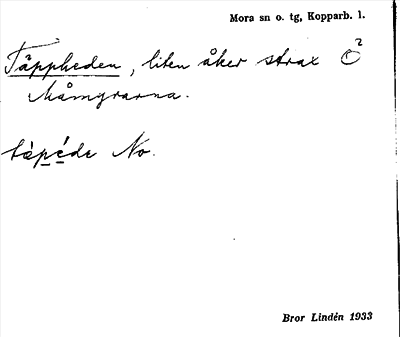 Mora sn o. tg, Kopparb. l.
Täppheden, liten åker strax O²
Måmyrarna.
tàpéde No.
Bror Lindén 1933